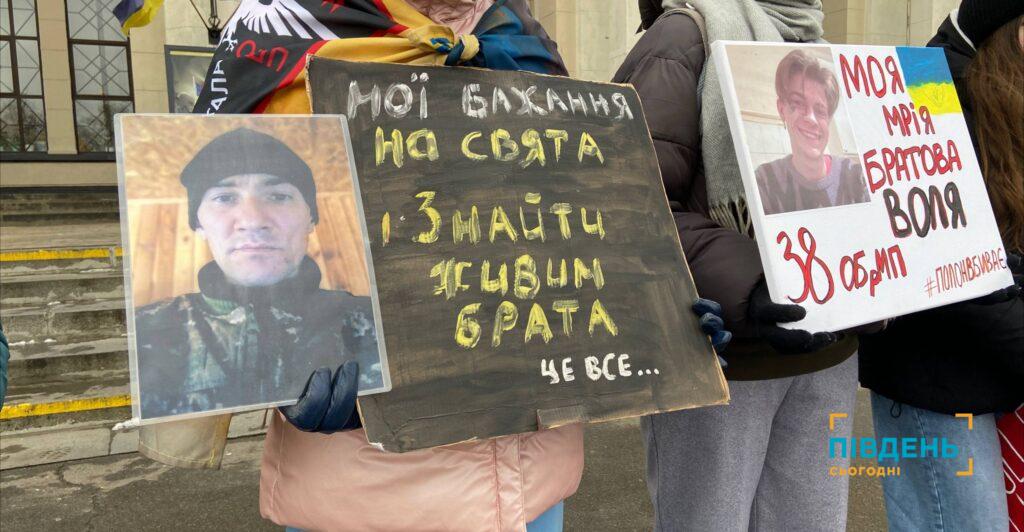 МОЇ БАЖАННЯ
НА СВЯТА
ЗНАЙТИ
ЖИВИМ
БРАТА
ЦЕ ВСЕ...
МОЯ
МРІЯ
БРАТОВА
ВОЛЯ
38 ОБрМП
#ПОЛОНВБИВАЄ
ПІВДЕНЬ
СЬОГОДНІ